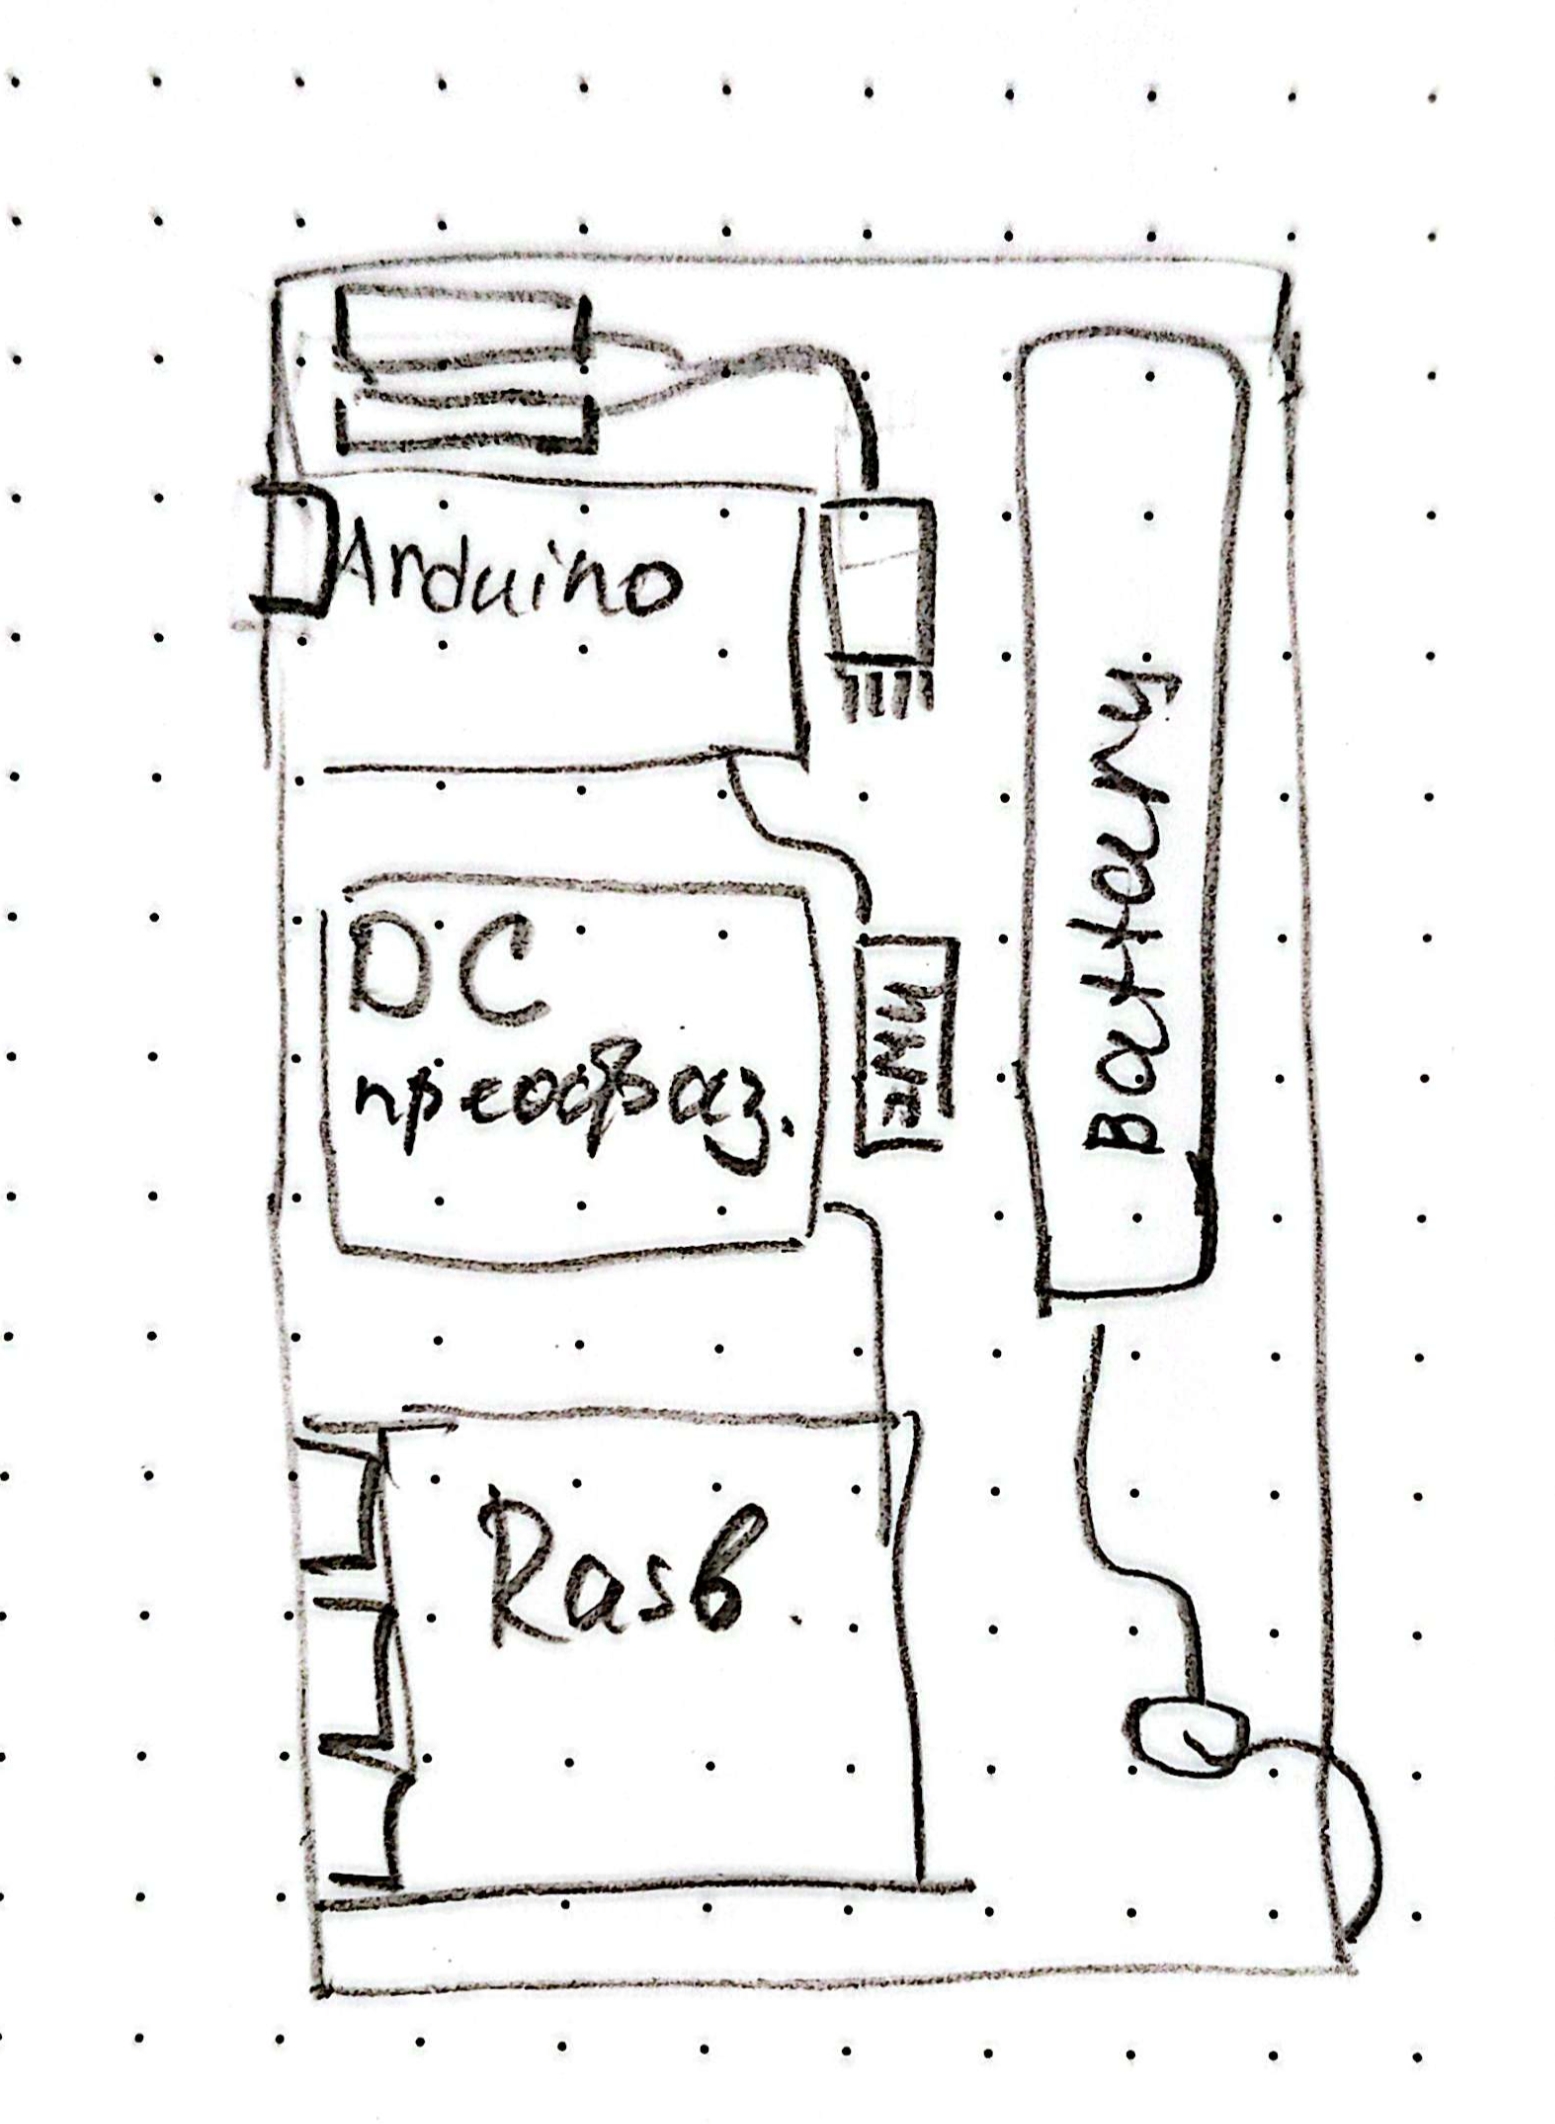 Arduino
DC
преобраз.
Battary
Rasb.